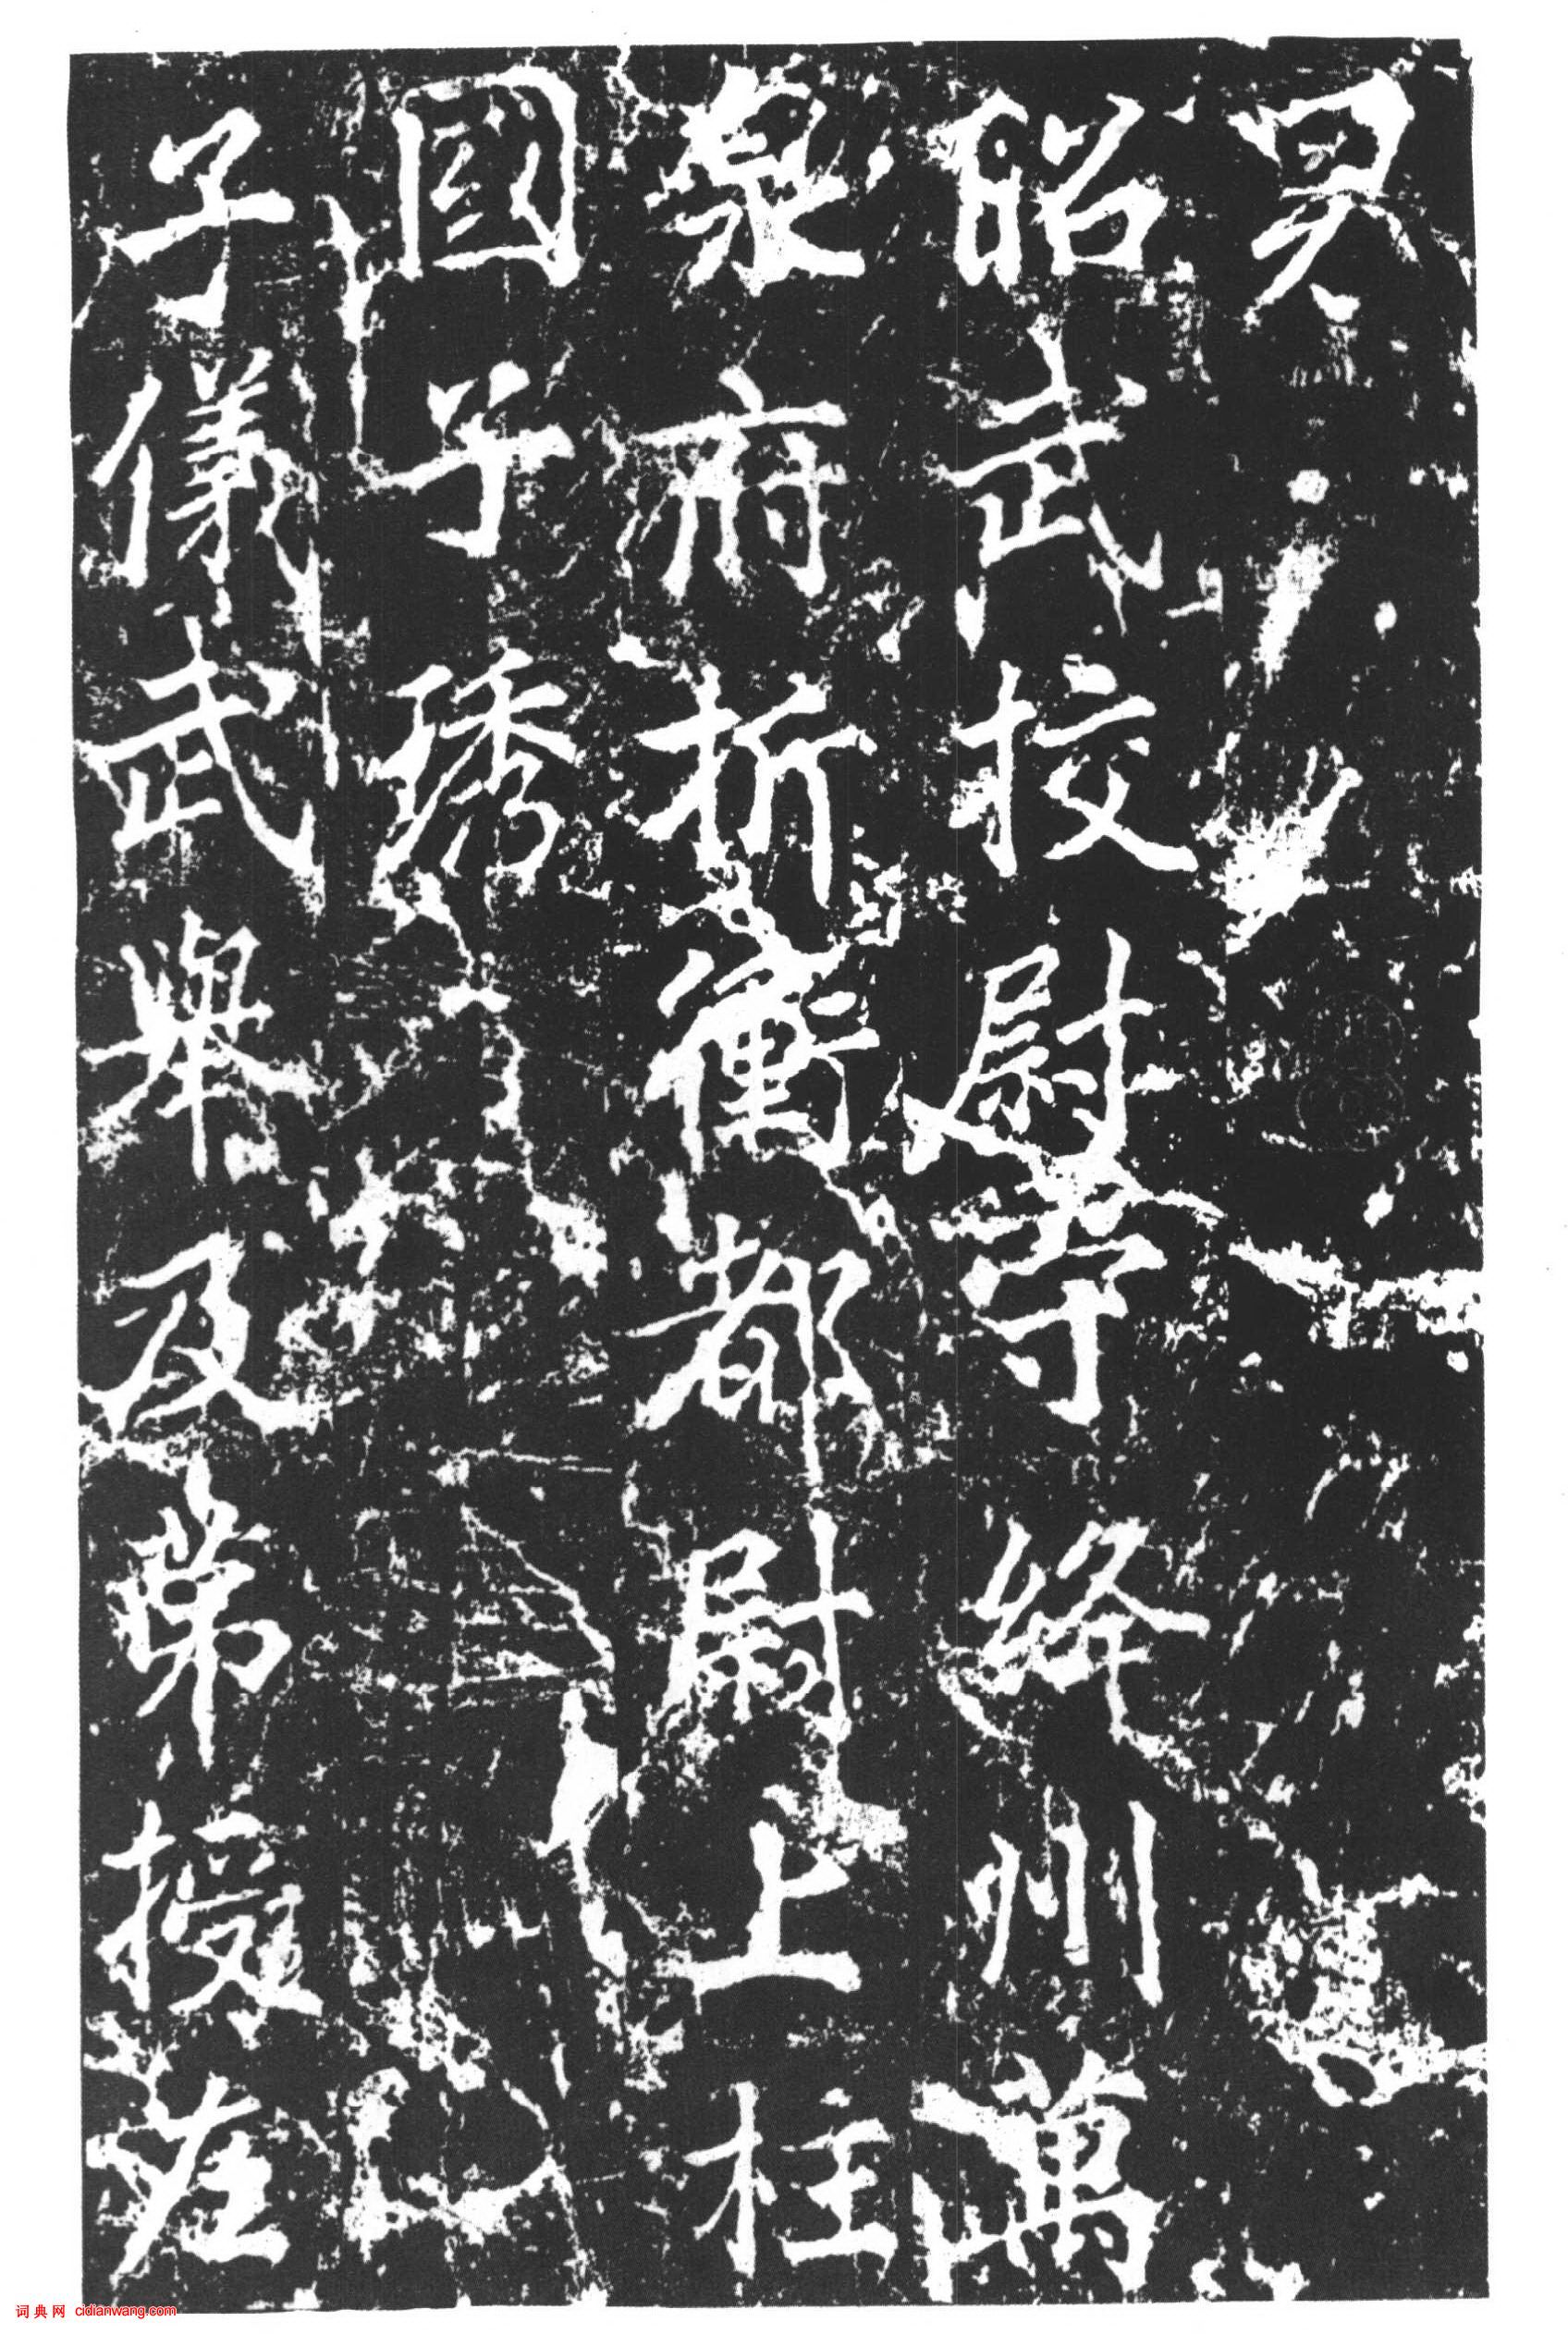 昭武校尉守絳州萬
泉府折衝都尉上柱
國子琇
子儀武舉及第授左
词典网 cidianwang.com